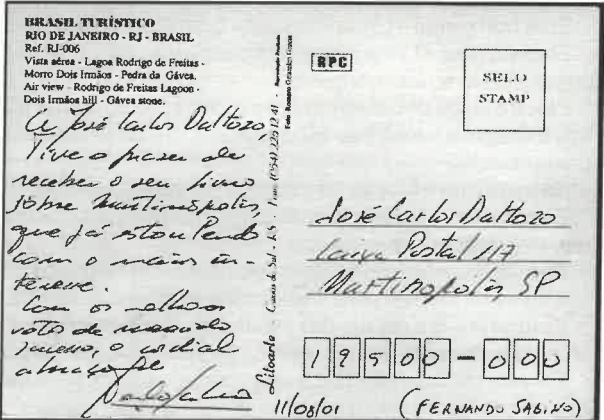 BRASIL TURÍSTICO
RIO DE JANEIRO - RJ - BRASIL
Ref. RJ-006
Vista aérea - Lagoa Rodrigo de Freitas -
Morro Dois Irmãos - Pedra da Gávea.
Air view - Rodrigo de Freitas Lagoon -
Dois Irmãos hill - Gávea stone.
A José Carlos Daltozo,
Tive o prazer de
receber o seu livro
sôbre Martinópolis,
que já estou lendo
com o maior in-
teresse.
Com os melhores
votos de
sucesso, o cordial
abraço de
Litoarte Caxias do Sul - RS - Fone: (054) 225 12 41 - Reprodução Proibida
Foto:
RPC
SELO
STAMP
José Carlos Daltozo
Caixa Postal 117
Martinópolis, SP
19500-000
11/08/01
(FERNANDO SABINO)